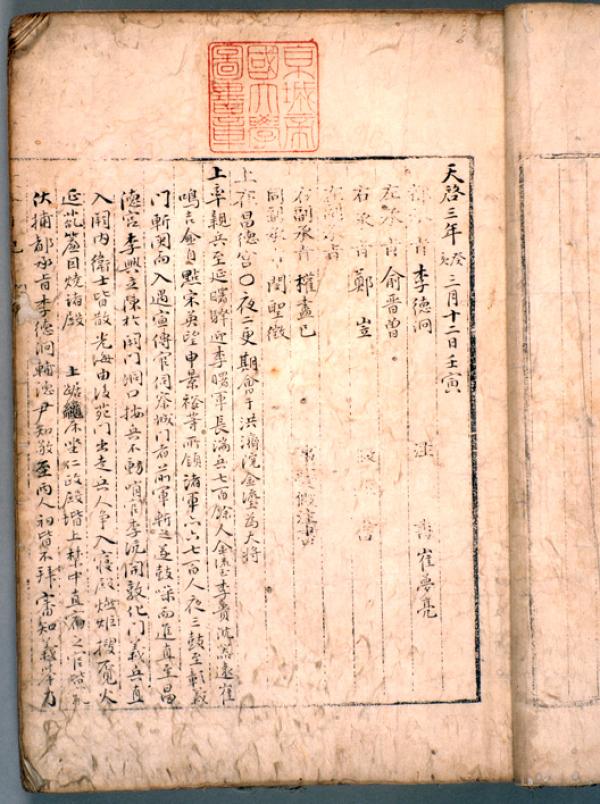 京城帝
國大學
圖書章
天啓三年癸亥三月十二日壬寅
都承旨李德泂 注書崔夢亮
左承旨俞晋曾
右承旨鄭岦 假注書
左副承旨
右副承旨權盡己 事變假注書
同副承旨閔聖徵
上在昌德宮○夜二更期會于洪濟院金瑬爲大將
上率親兵至延曙驛迎李曙軍長湍兵七百餘人金瑬李貴沈器遠崔
鳴吉金自點宋英望申景裕等所領諸軍六七百人夜三鼓至彰義
門斬關而入遇宣傳官伺察城門者前軍斬之遂鼓噪而進直至昌
德宮李興立陳於闕門洞口按兵不動哨官李沆開敦化門義兵直
入闕內衛士皆散光海由後苑門出走兵人爭入寢殿燃炬搜覓火
延 簾因燒諸殿 上 床坐仁政殿階上禁中直宿之官
伏捕都承旨李德泂輔德尹知敬至兩人初皆不拜審知義舉乃